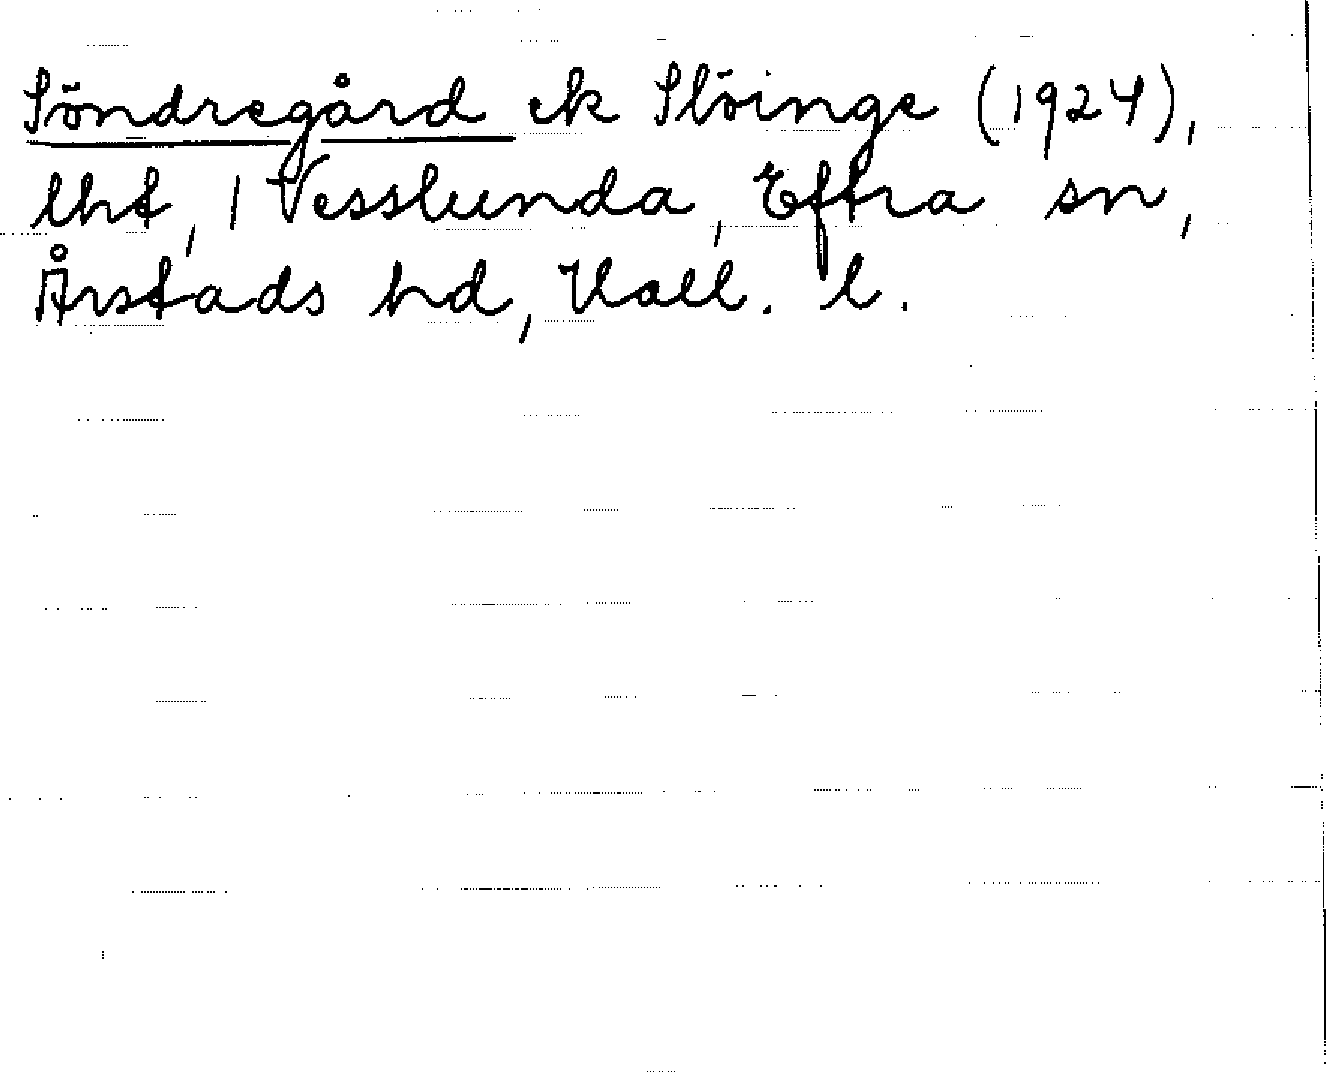 Söndregård ek Slöinge (1924),
lht, 1 Vesslunda, Eftra sn,
Årstads hd, Hall. l.